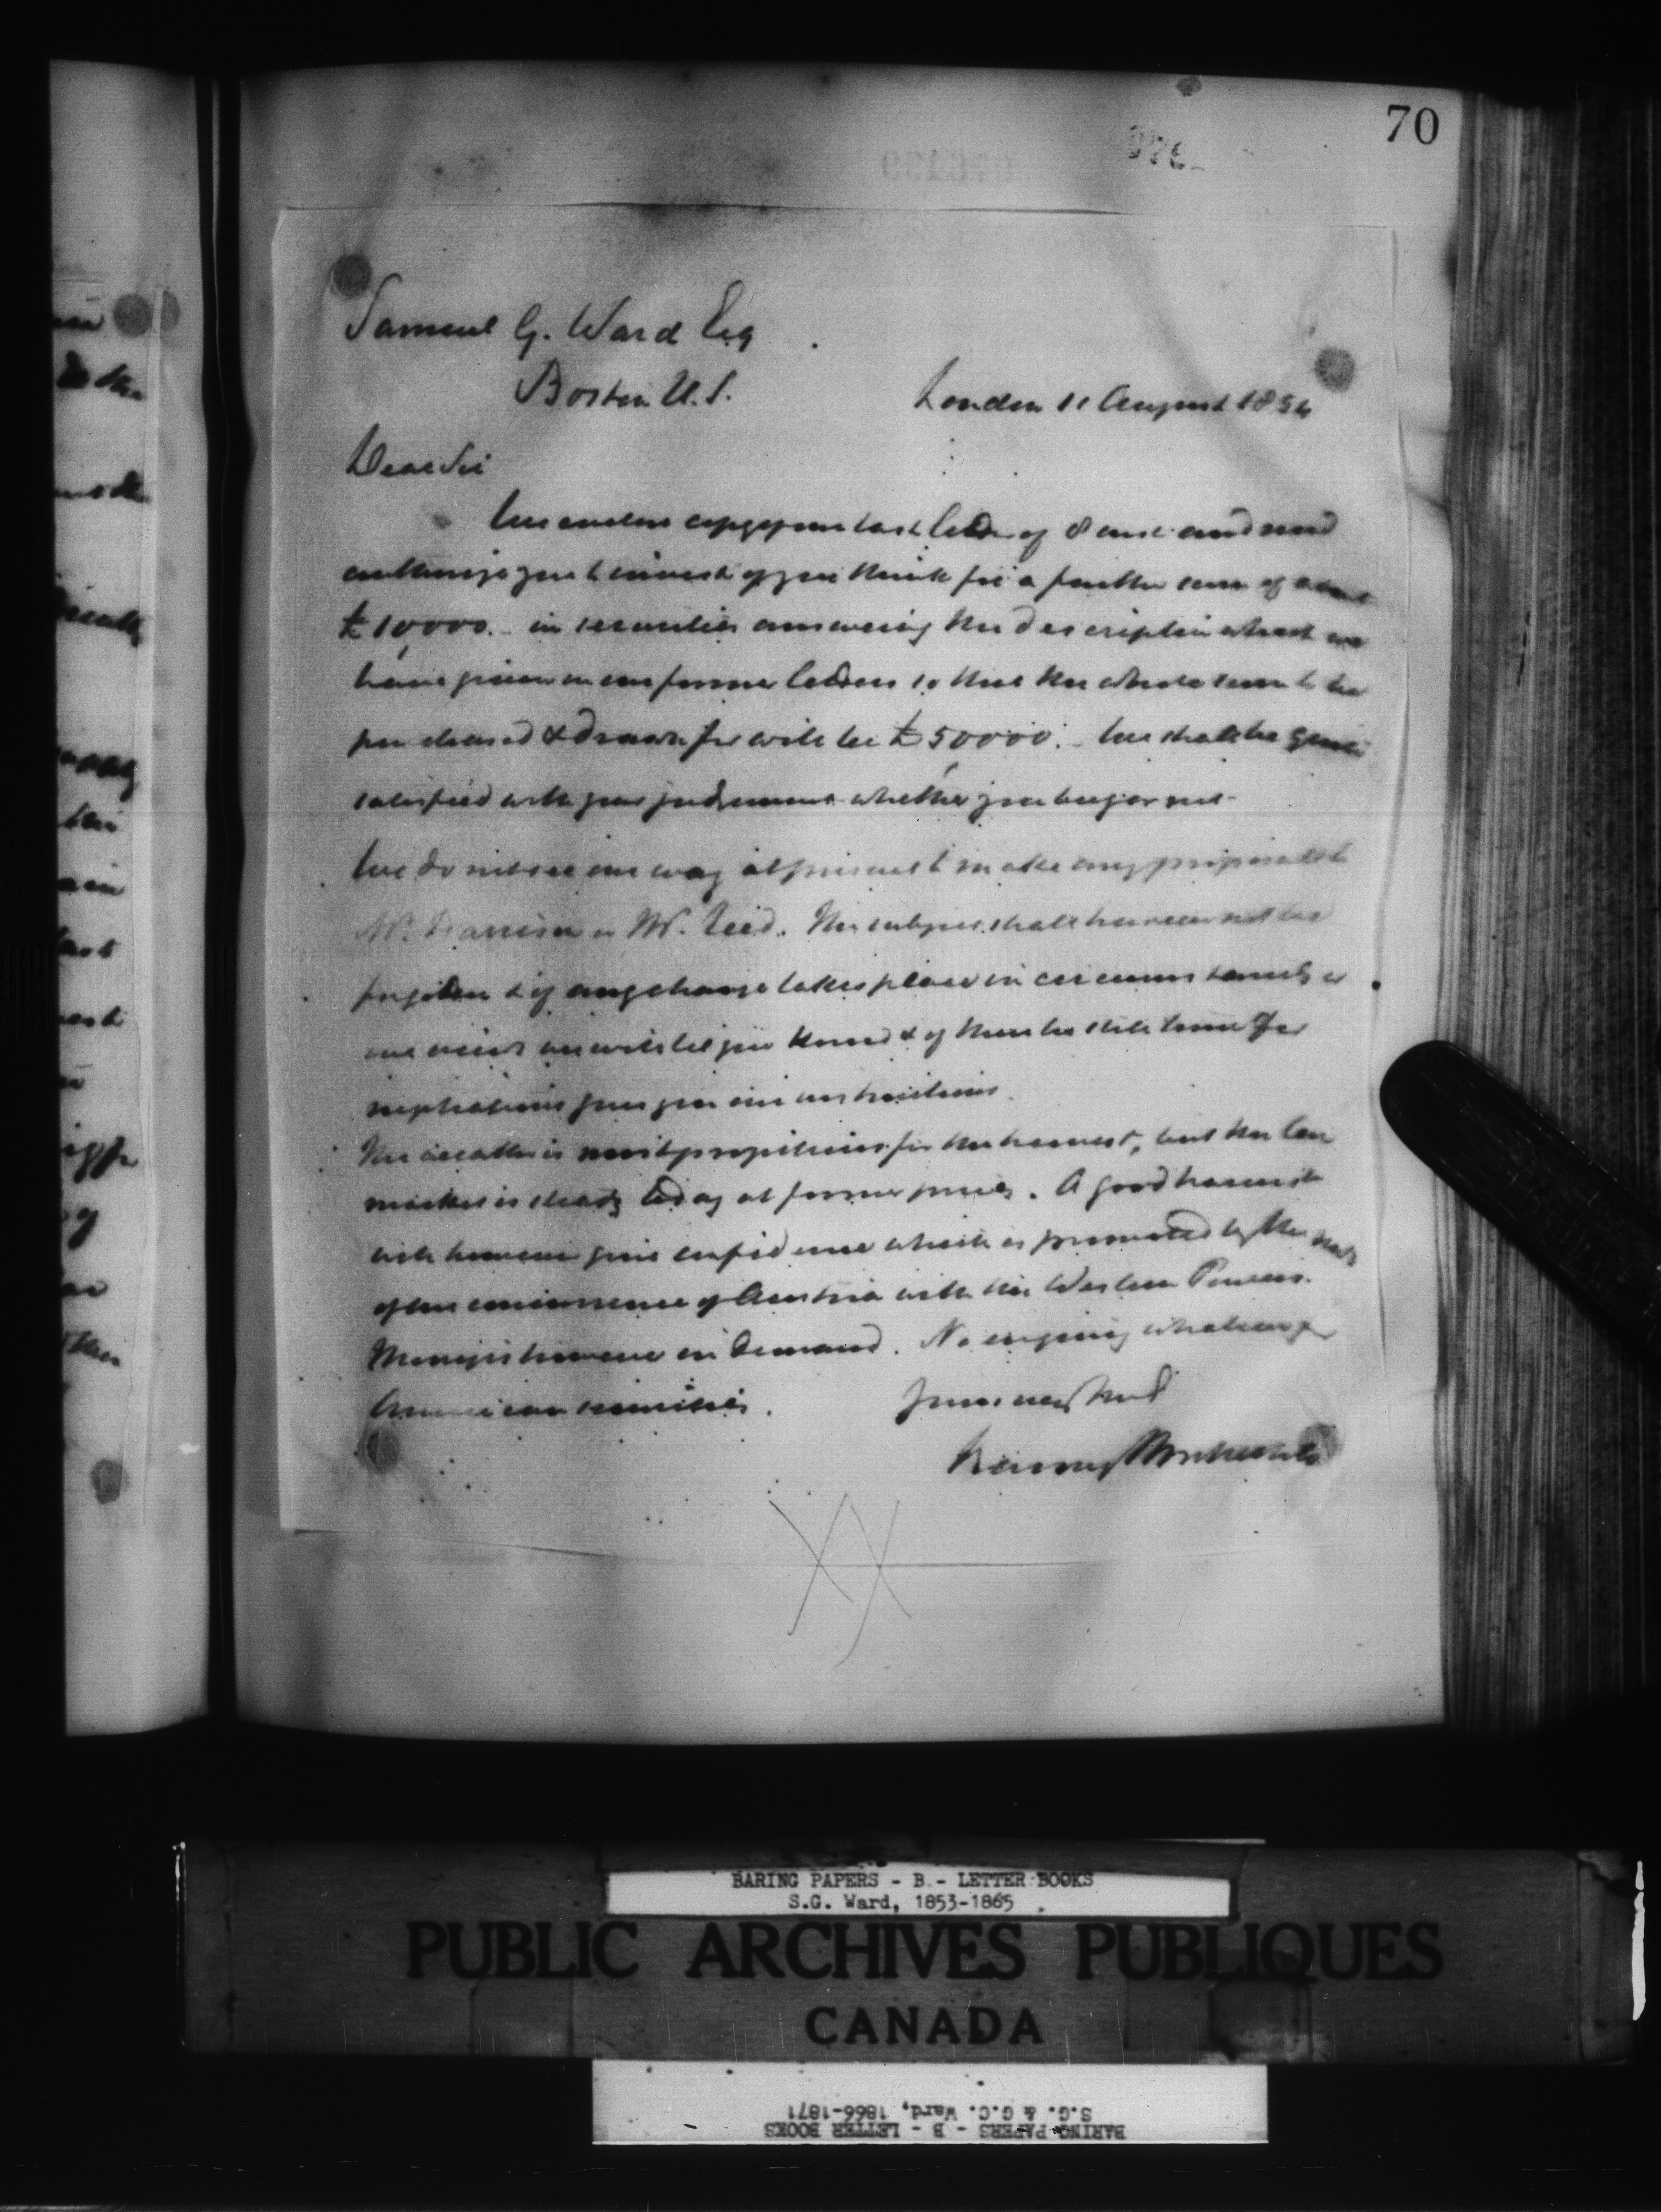 70
Samuel G. Ward Esq
Boston U.S.
London 11 August 1854
Dear Sir
We enclose copy of our last letter of 8 inst and now
authorize you to invest if you think fit a further sum of about
£10,000.- in securities answering the description which we
have given in our former letters so that the whole sum to be
purchased & drawn for will be £50000.- We shall be quite
satisfied with your judgement whether you buy or not-
We do not see our way at present to make any proposals to
Mr. Harrison or Mr. Reed. The subject shall however not be
forgotten & if any change takes place in circumstances or
our views we will let you know & if there be still time for
negotiations give you our instructions.
The weather is most propitious for the harvest, but the Corn
market is steady today at former prices. A good harvest
will however give confidence which is promoted by the
of the concurrence of Austria with the Western Powers.
Money is however in demand. No enquiry whatever for
American securities.
Yours very truly
Baring Brothers & Co
BARING PAPERS - B - LETTER BOOKS
S.G. Ward, 1853-1865
PUBLIC ARCHIVES PUBLIQUES
CANADA
BARING PAPERS - B - LETTER BOOKS
S.G. & G.C. Ward, 1866-1871